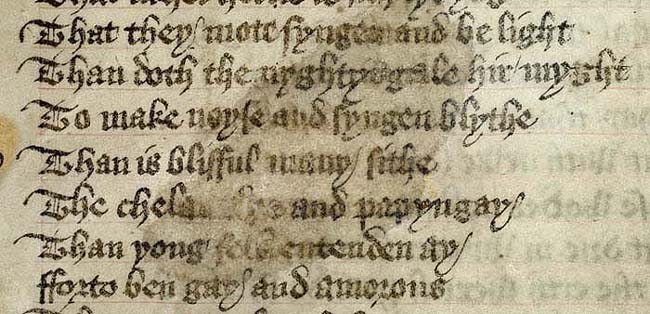 That they mote syngen and be light
Than doth the nyghtyngale hir myght
To make noyse and syngen blythe
Than is blisful many sithe
The and papyngay
Than yong folk entenden ay
fforto ben gay and amorous